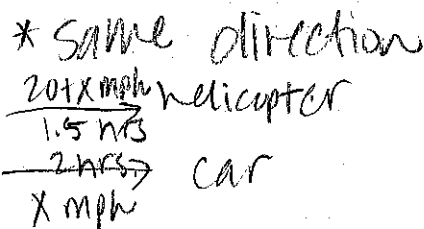 * same direction
20+x mph helicopter
1.5 hrs
2 hrs car
x mph